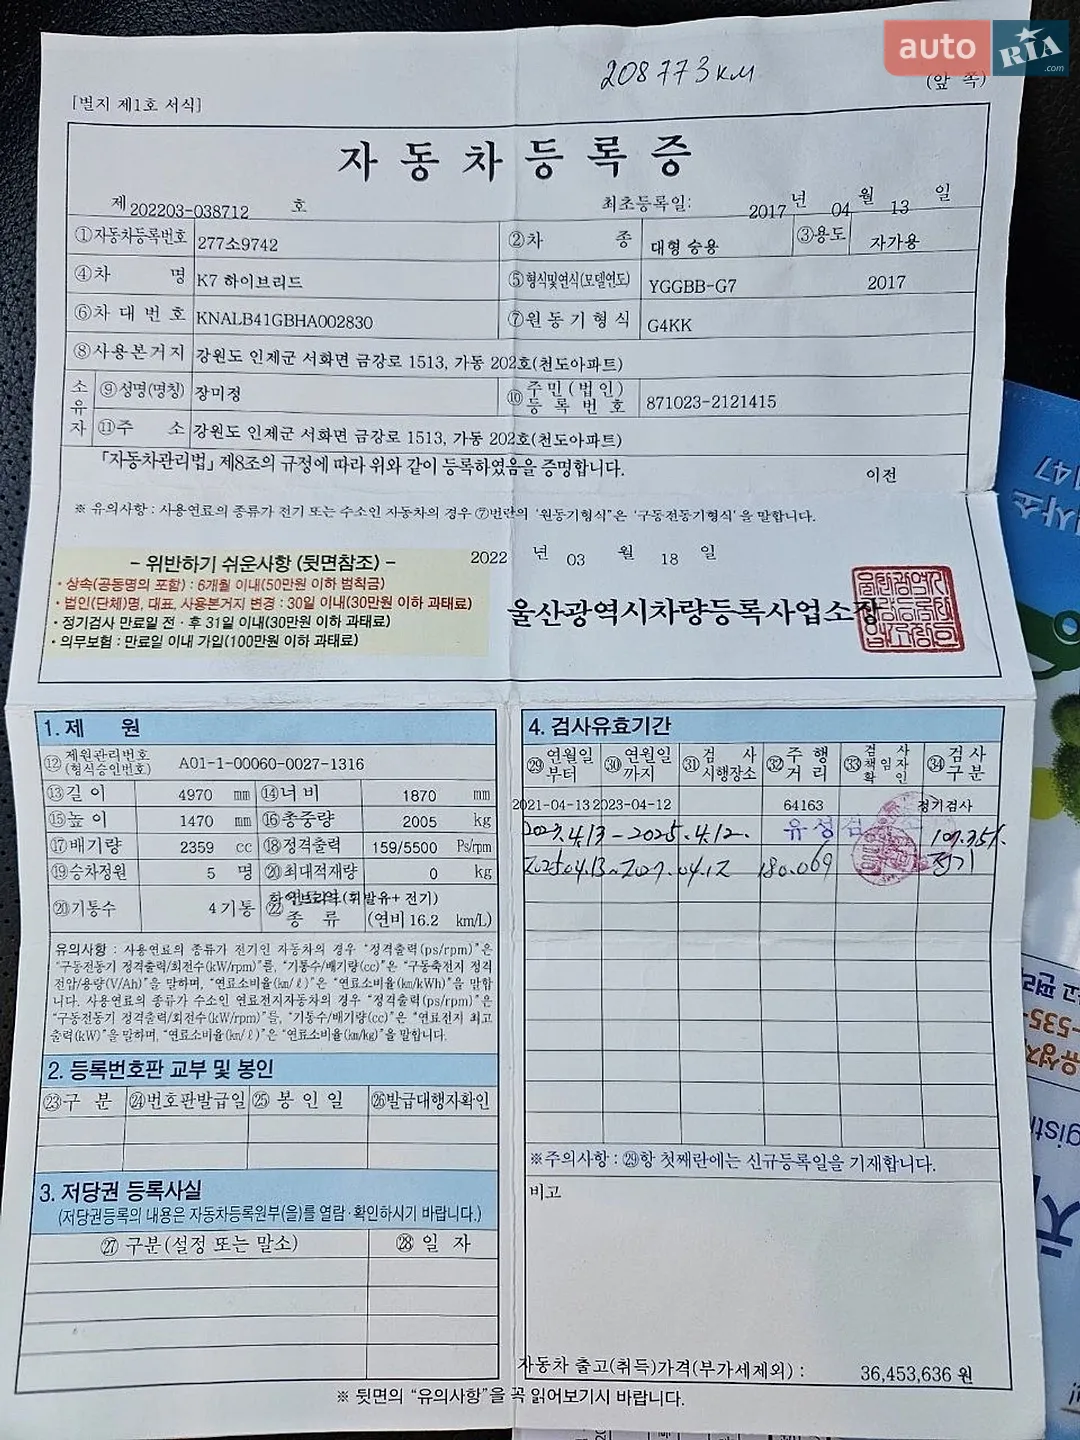 auto RIA.com
208773км
(앞 쪽)
[별지 제1호 서식]
자동차등록증
제 202203-038712 호 최초등록일: 2017 년 04 월 13 일
①자동차등록번호 277소9742 ②차 종 대형 승용 ③용도 자가용
④차 명 K7 하이브리드 ⑤형식및연식(모델연도) YGGBB-G7 2017
⑥차대번호 KNALB41GBHA002830 ⑦원동기형식 G4KK
⑧사용본거지 강원도 인제군 서화면 금강로 1513, 가동 202호(천도아파트)
소유자 ⑨성명(명칭) 장미정 ⑩주민(법인)등록번호 871023-2121415
⑪주 소 강원도 인제군 서화면 금강로 1513, 가동 202호(천도아파트)
「자동차관리법」 제8조의 규정에 따라 위와 같이 등록하였음을 증명합니다.
이전
※ 유의사항 : 사용연료의 종류가 전기 또는 수소인 자동차의 경우 ⑦번란의 '원동기형식"은 '구동전동기형식'을 말합니다.
2022 년 03 월 18 일
- 위반하기 쉬운사항 (뒷면참조) -
• 상속(공동명의 포함) : 6개월 이내(50만원 이하 범칙금)
• 법인(단체)명, 대표, 사용본거지 변경 : 30일 이내(30만원 이하 과태료)
• 정기검사 만료일 전 · 후 31일 이내(30만원 이하 과태료)
• 의무보험 : 만료일 이내 가입(100만원 이하 과태료)
울산광역시차량등록사업소장
1. 제 원
⑫제원관리번호(형식승인번호) A01-1-00060-0027-1316
⑬길이 4970 mm ⑭너비 1870 mm
⑮높이 1470 mm ⑯총중량 2005 kg
⑰배기량 2359 cc ⑱정격출력 159/5500 Ps/rpm
⑲승차정원 5 명 ⑳최대적재량 0 kg
⑳기통수 4 기통 ㉒ 종 류 (휘발유+ 전기) (연비 16.2 km/L)
유의사항 : 사용연료의 종류가 전기인 자동차의 경우 "정격출력(ps/rpm)"은
"구동전동기 정격출력/회전수(kW/rpm)"를, "기통수/배기량(cc)"은 "구동축전지 정격
전압/용량(V/Ah)"을 말하며, "연료소비율(㎞/ℓ)"은 "연료소비율(㎞/kWh)"을 말합
니다. 사용연료의 종류가 수소인 연료전지자동차의 경우 "정격출력(ps/rpm)"은
"구동전동기 정격출력/회전수(kW/rpm)"를, "기통수/배기량(cc)"은 "연료전지 최고
출력(kW)"을 말하며, "연료소비율(㎞/ℓ)"은 "연료소비율(㎞/kg)"을 말합니다.
2. 등록번호판 교부 및 봉인
㉓구 분 ㉔번호판발급일 ㉕봉 인 일 ㉖발급대행자확인
3. 저당권 등록사실
(저당권등록의 내용은 자동차등록원부(을)를 열람·확인하시기 바랍니다.)
㉗ 구분(설정 또는 말소) ㉘ 일 자
4. 검사유효기간
㉙연월일부터 ㉚연월일까지 ㉛검 사 시행장소 ㉜주 행 거 리 ㉝검 사 책임자 확 인 ㉞검사 구분
2021-04-13 2023-04-12 64163 정기검사
2023.4.13 - 2025.4.12. 유성
2025.04.13 04.12 180.069 정기
※주의사항 : ㉙항 첫째란에는 신규등록일을 기재합니다.
비고
자동차 출고(취득)가격(부가세제외) : 36,453,636 원
※ 뒷면의 "유의사항"을 꼭 읽어보기시 바랍니다.